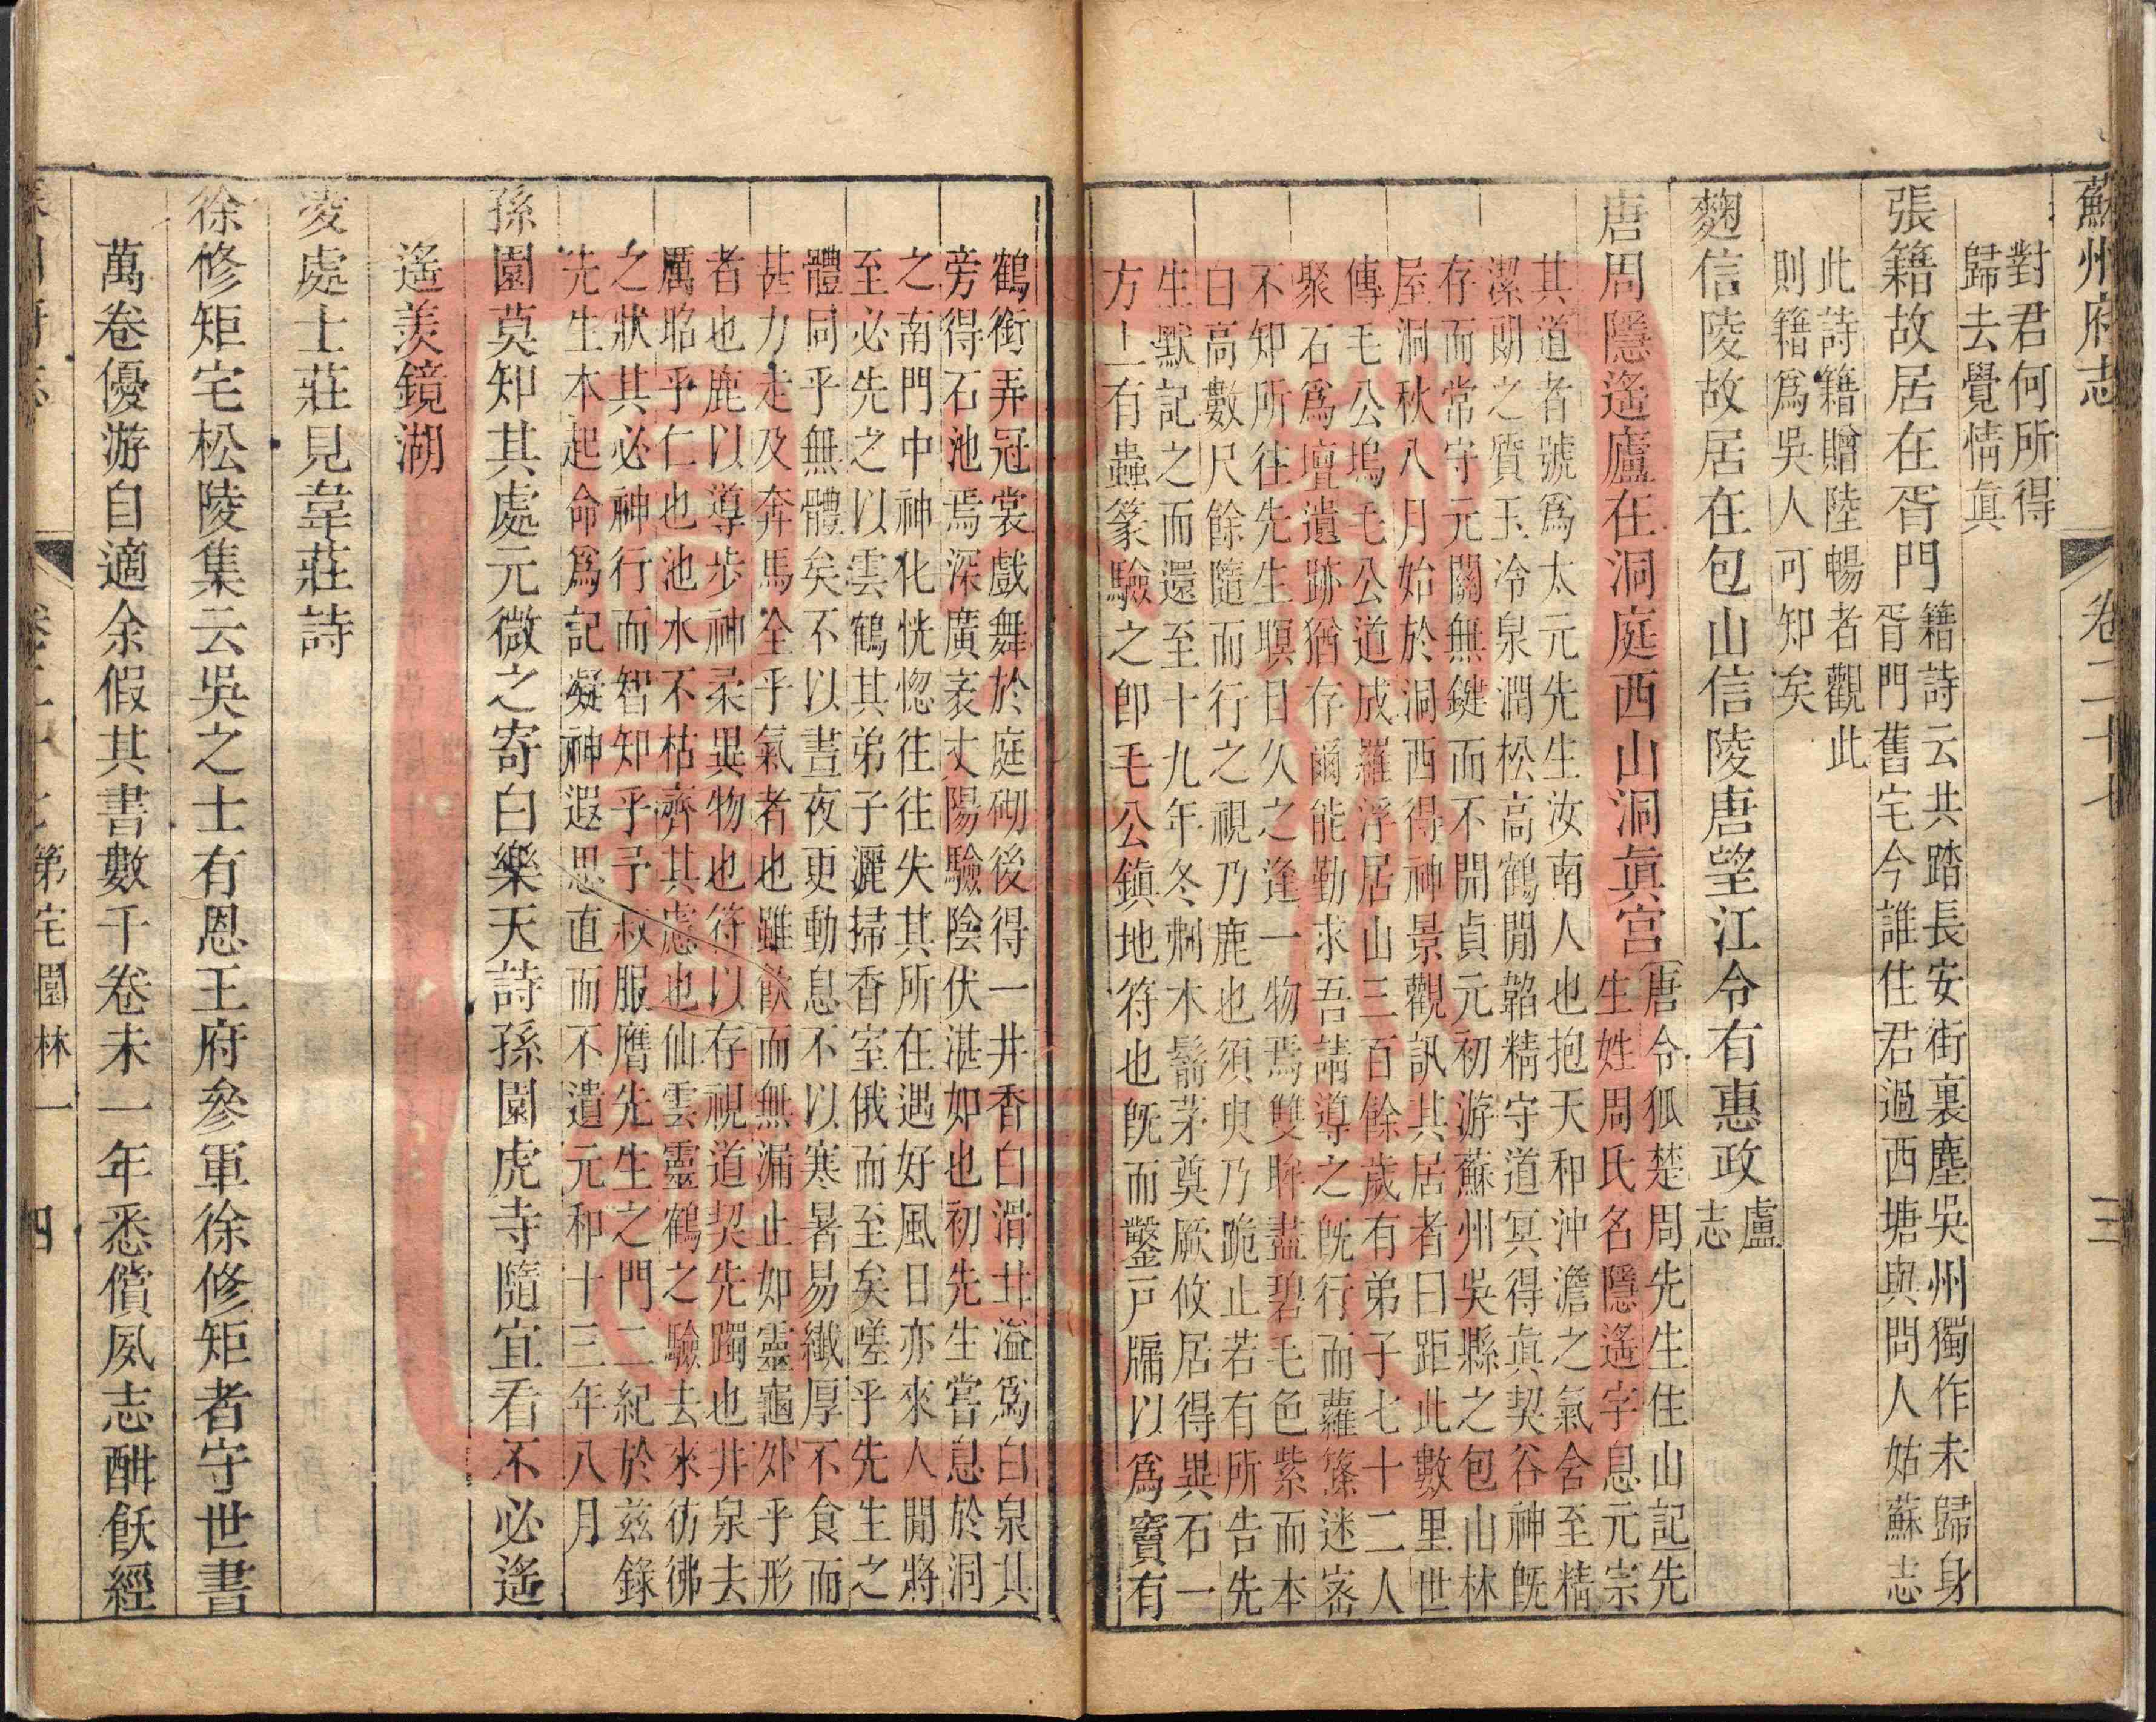 蘇州府志 卷二十七 三
對君何所得
歸去覺情眞
張籍故居在胥門
籍詩云共踏長安街裏塵吳州獨作未歸身
胥門舊宅今誰住君過西塘與問人姑蘇志
此詩籍贈陸暢者觀此
則籍爲吳人可知矣
麴信陵故居在包山信陵唐望江令有惠政
盧
志
唐周隱遙廬在洞庭西山洞眞宮
唐令狐楚周先生住山記先
生姓周氏名隱遙字息元宗
其道者號爲太元先生汝南人也抱天和沖澹之氣含至精
潔朗之質玉冷泉潤松高鶴閒韜精守道冥得眞契谷神旣
存而常守元關無鍵而不開貞元初游蘇州吳縣之包山林
屋洞秋八月始於洞西得神景觀訊其居者曰距此數里世
傳毛公塢毛公道成羅浮居山三百餘歲有弟子七十二人
聚石爲壇遺跡猶存爾能勤求吾請導之旣行而蘿篠迷密
不知所往先生瞑目久之逢一物焉雙眸盡碧毛色紫而本
白高數尺餘隨而行之視乃鹿也須臾乃跪止若有所告先
生默記之而還至十九年冬剡木翦茅奠厥攸居得異石一
方上有蟲篆驗之卽毛公鎮地符也旣而鑿戸牖以爲竇有
鶴銜弄冠裳戲舞於庭砌後得一井香白滑甘溢爲白泉其
旁得石池焉深廣袤丈陽驗陰伏湛如也初先生嘗息於洞
之南門中神化恍惚往往失其所在遇好風日亦來人閒將
至必先之以雲鶴其弟子灑掃香室俄而至矣嗟乎先生之
體同乎無體矣不以晝夜更動息不以寒暑易纖厚不食而
甚力走及奔馬全乎氣者也雖飲而無漏止如靈龜外乎形
者也鹿以導步神柔異物也符以存視道契先躅也井泉去
厲昭乎仁也池水不枯濟其慮也仙雲靈鶴之驗去來彷彿
之狀其必神行而智知乎予叔服膺先生之門二紀於兹錄
先生本起命爲記凝神遐思直而不遺元和十三年八月
孫園莫知其處元微之寄白樂天詩孫園虎寺隨宜看不必遙
遙羨鏡湖
淩處士莊見韋莊詩
徐修矩宅松陵集云吳之士有恩王府參軍徐修矩者守世書
萬卷優游自適余假其書數千卷未一年悉償夙志酣飫經
第宅園林一 四